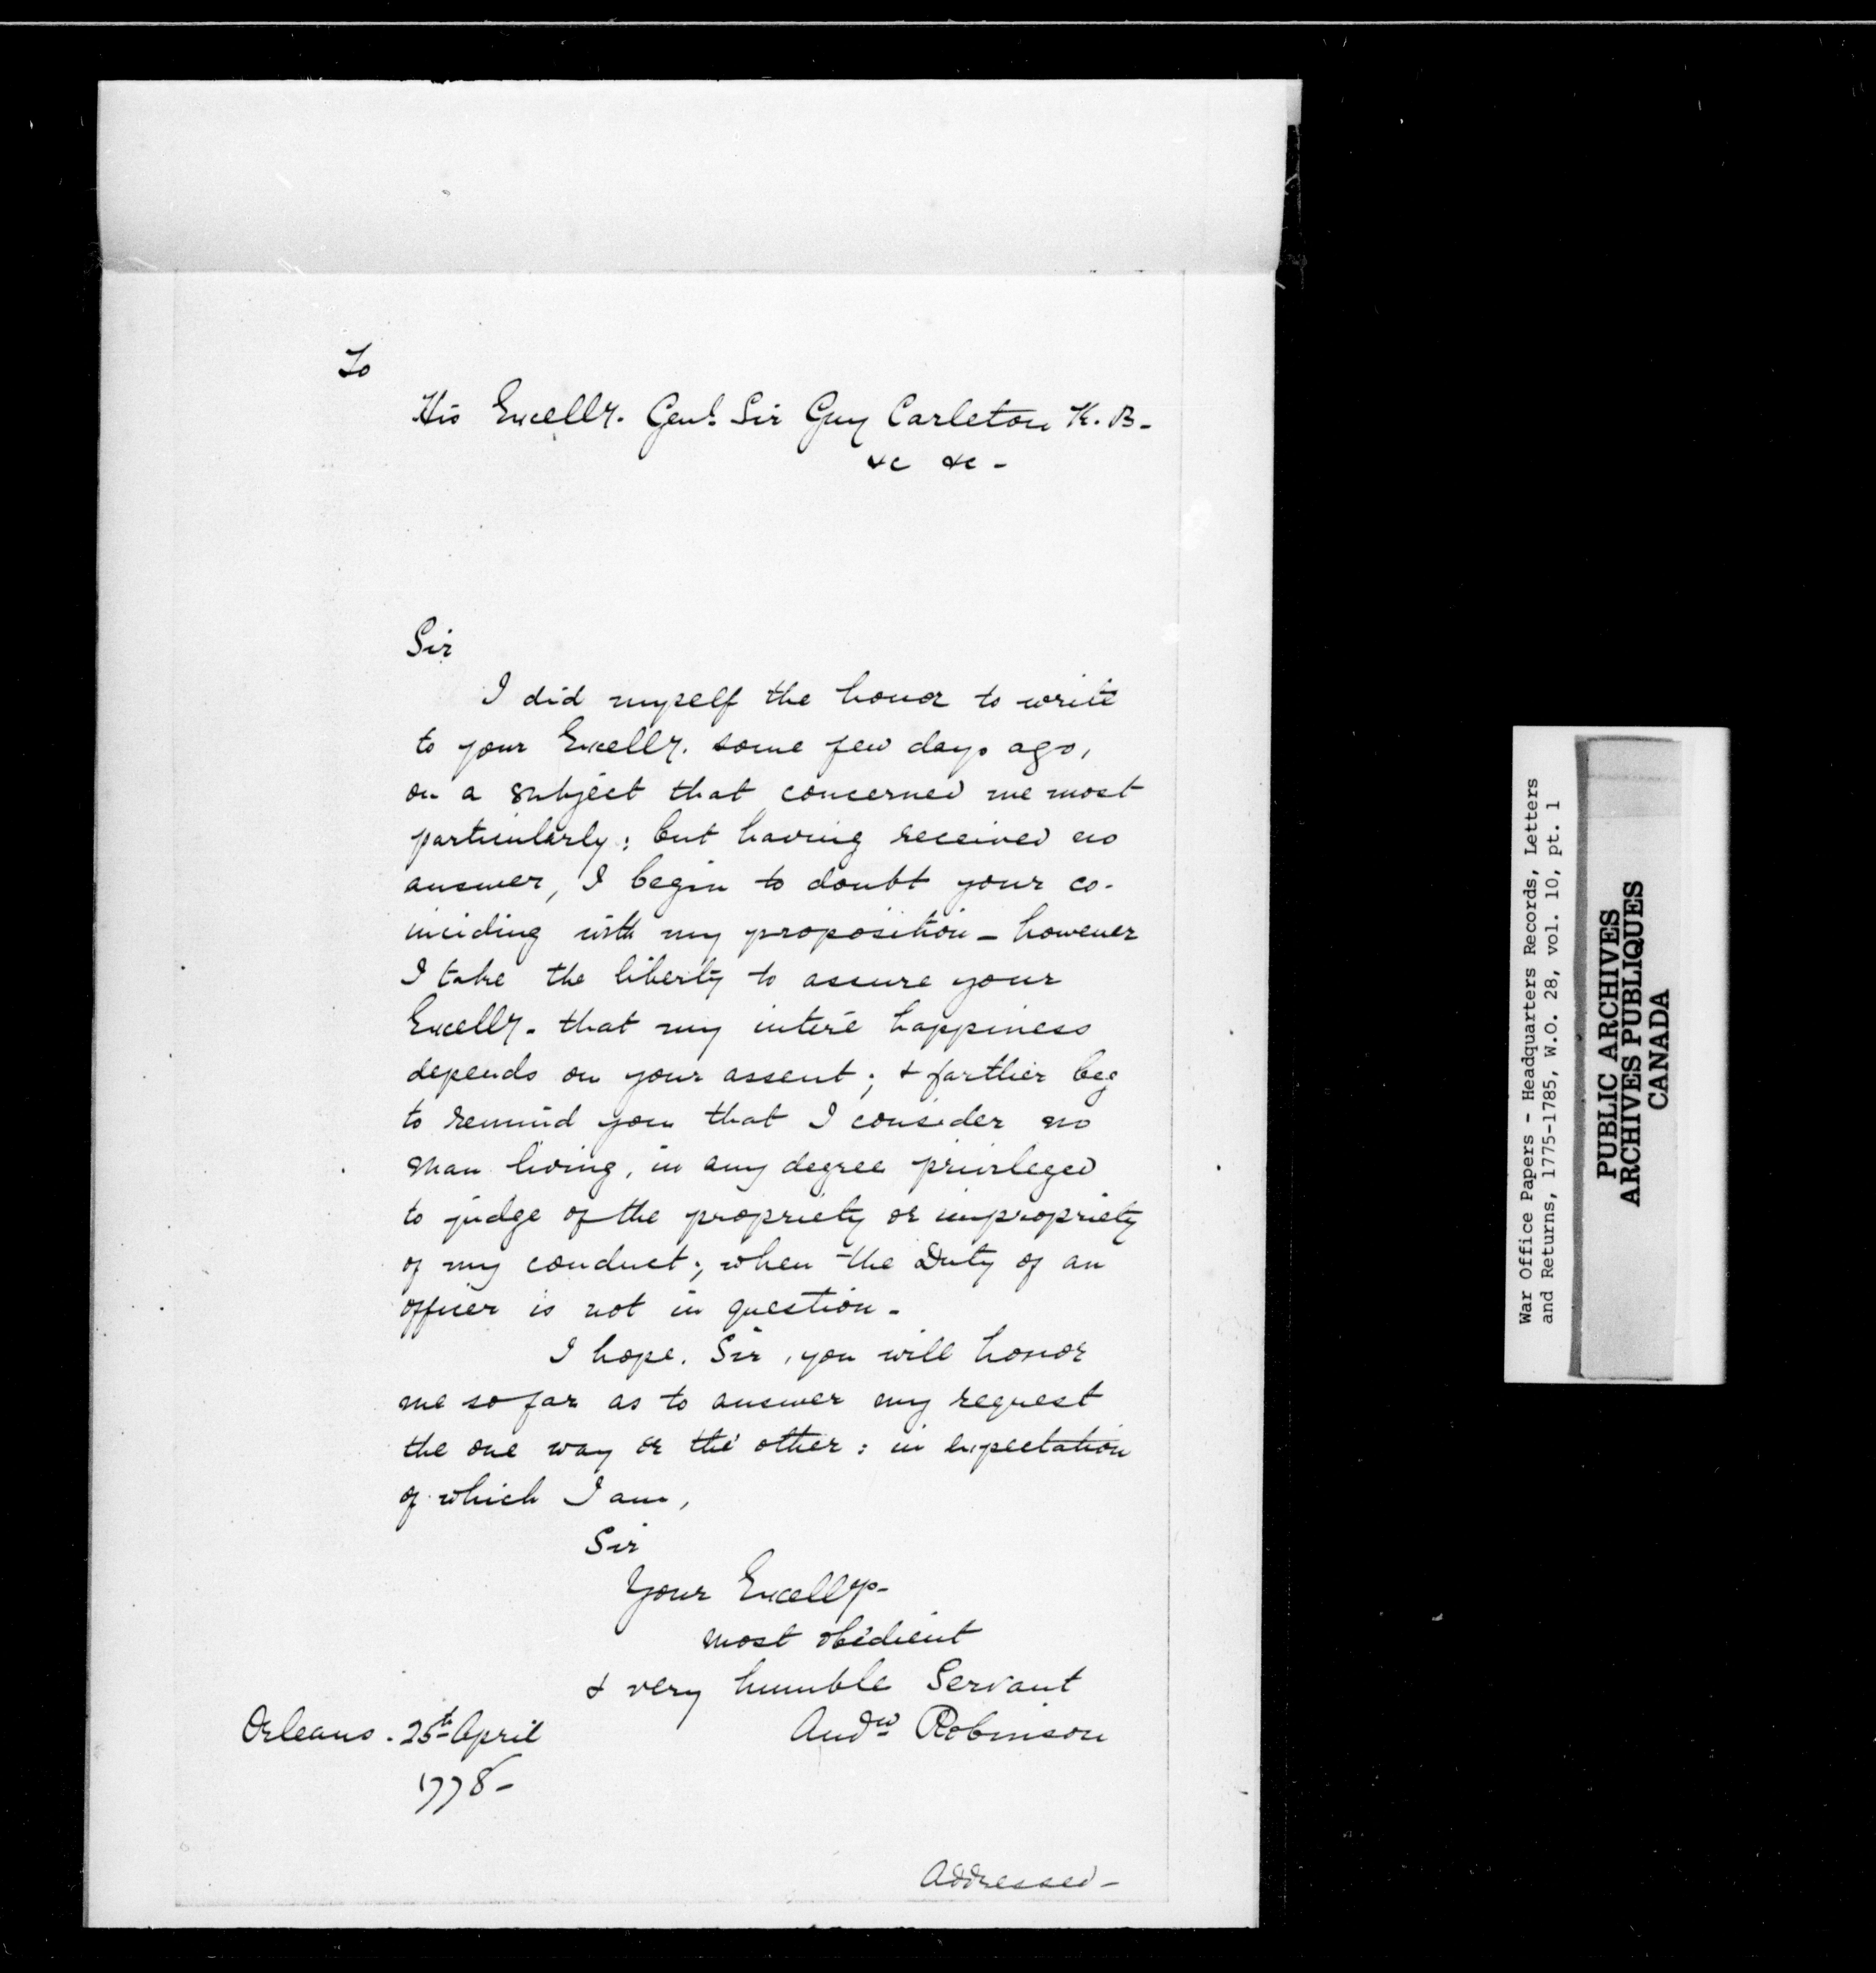 To
His Excelly. Genl. Sir Guy Carleton K. B-
&c &c -
Sir
I did myself the honor to write
to your Excelly. some few days ago,
on a subject that concerned me most
particularly; but having received no
answer, I begin to doubt your co-
inciding with my proposition - however
I take the liberty to assure your
Excelly. that my intere happiness
depends on your assent; & farther beg
to remind you that I consider no
man living, in any degree privileged
to judge of the propriety or impropriety
of my conduct; when the Duty of an
officer is not in question -
I hope, Sir, you will honor
me so far as to answer my request
the one way or the other: in expectation
of which I am,
Sir
Your Excellys-
most obedient
& very humble Servant
Andw Robinson
Orleans. 25th April
1778-
Addressed-
War Office Papers - Headquarters Records, Letters
and Returns, 1775-1785, W.O. 28, vol. 10, pt. 1
PUBLIC ARCHIVES
ARCHIVES PUBLIQUES
CANADA